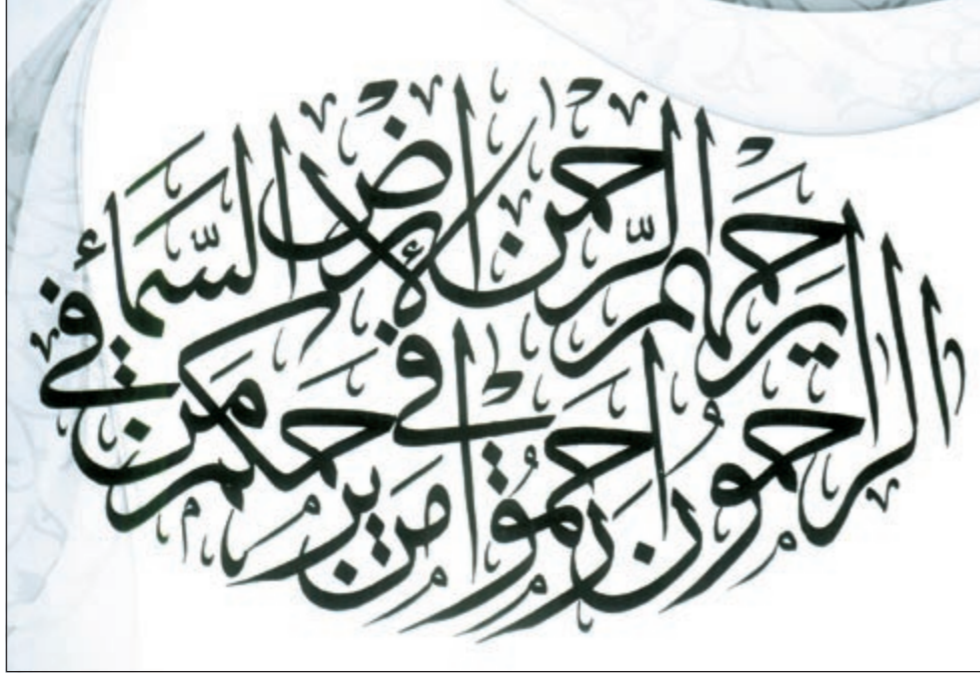 الرحمون يرحمهم الرحمن ارحموا من في الأرض يرحمكم من في السماء